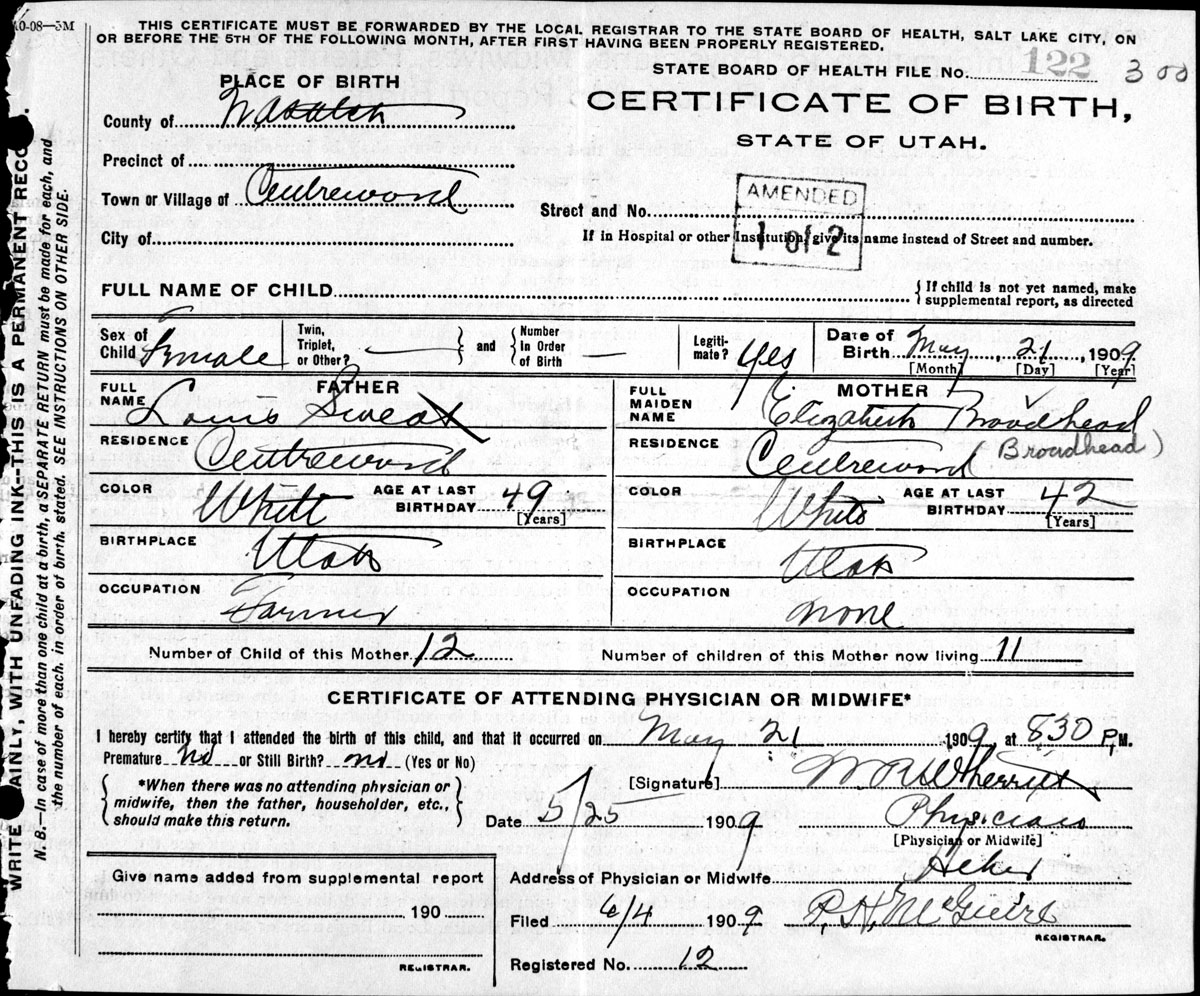 10-08—5M
THIS CERTIFICATE MUST BE FORWARDED BY THE LOCAL REGISTRAR TO THE STATE BOARD OF HEALTH, SALT LAKE CITY, ON
OR BEFORE THE 5TH OF THE FOLLOWING MONTH, AFTER FIRST HAVING BEEN PROPERLY REGISTERED.
STATE BOARD OF HEALTH FILE No. 122 300
PLACE OF BIRTH
CERTIFICATE OF BIRTH,
STATE OF UTAH.
County of Wasatch
Precinct of
Town or Village of Centreword
AMENDED
1 of 2
Street and No.
City of
If in Hospital or other Institution, give its name instead of Street and number.
FULL NAME OF CHILD
If child is not yet named, make
supplemental report, as directed
Sex of Child Female
Twin, Triplet, or Other? —
and
Number In Order of Birth —
Legiti-mate? Yes
Date of Birth May, 21, 1909
[Month] [Day] [Year]
FATHER
FULL NAME Louis Sweat
RESIDENCE Centreword
COLOR White
AGE AT LAST BIRTHDAY 49
[Years]
BIRTHPLACE Utah
OCCUPATION Farmer
MOTHER
FULL MAIDEN NAME Elizabeth Broadhead
RESIDENCE Centreword Broadhead)
COLOR White
AGE AT LAST BIRTHDAY 42
[Years]
BIRTHPLACE Utah
OCCUPATION none
Number of Child of this Mother 12
Number of children of this Mother now living 11
CERTIFICATE OF ATTENDING PHYSICIAN OR MIDWIFE*
I hereby certify that I attended the birth of this child, and that it occurred on May 21, 1909, at 830 P.M.
Premature no or Still Birth? no (Yes or No)
[Signature] W R Wherritt
*When there was no attending physician or
midwife, then the father, householder, etc.,
should make this return.
Date 5/25 1909
Physician
[Physician or Midwife]
Give name added from supplemental report
190
REGISTRAR.
Address of Physician or Midwife Heber
Filed 6/4 1909 P. H. McGuire
REGISTRAR.
Registered No. 12
WRITE AINLY, WITH UNFADING INK—THIS IS A PERMANENT RECO
N.B.—In case of more than one child at a birth, a SEPARATE RETURN must be made for each, and
the number of each, in order of birth, stated. SEE INSTRUCTIONS ON OTHER SIDE.